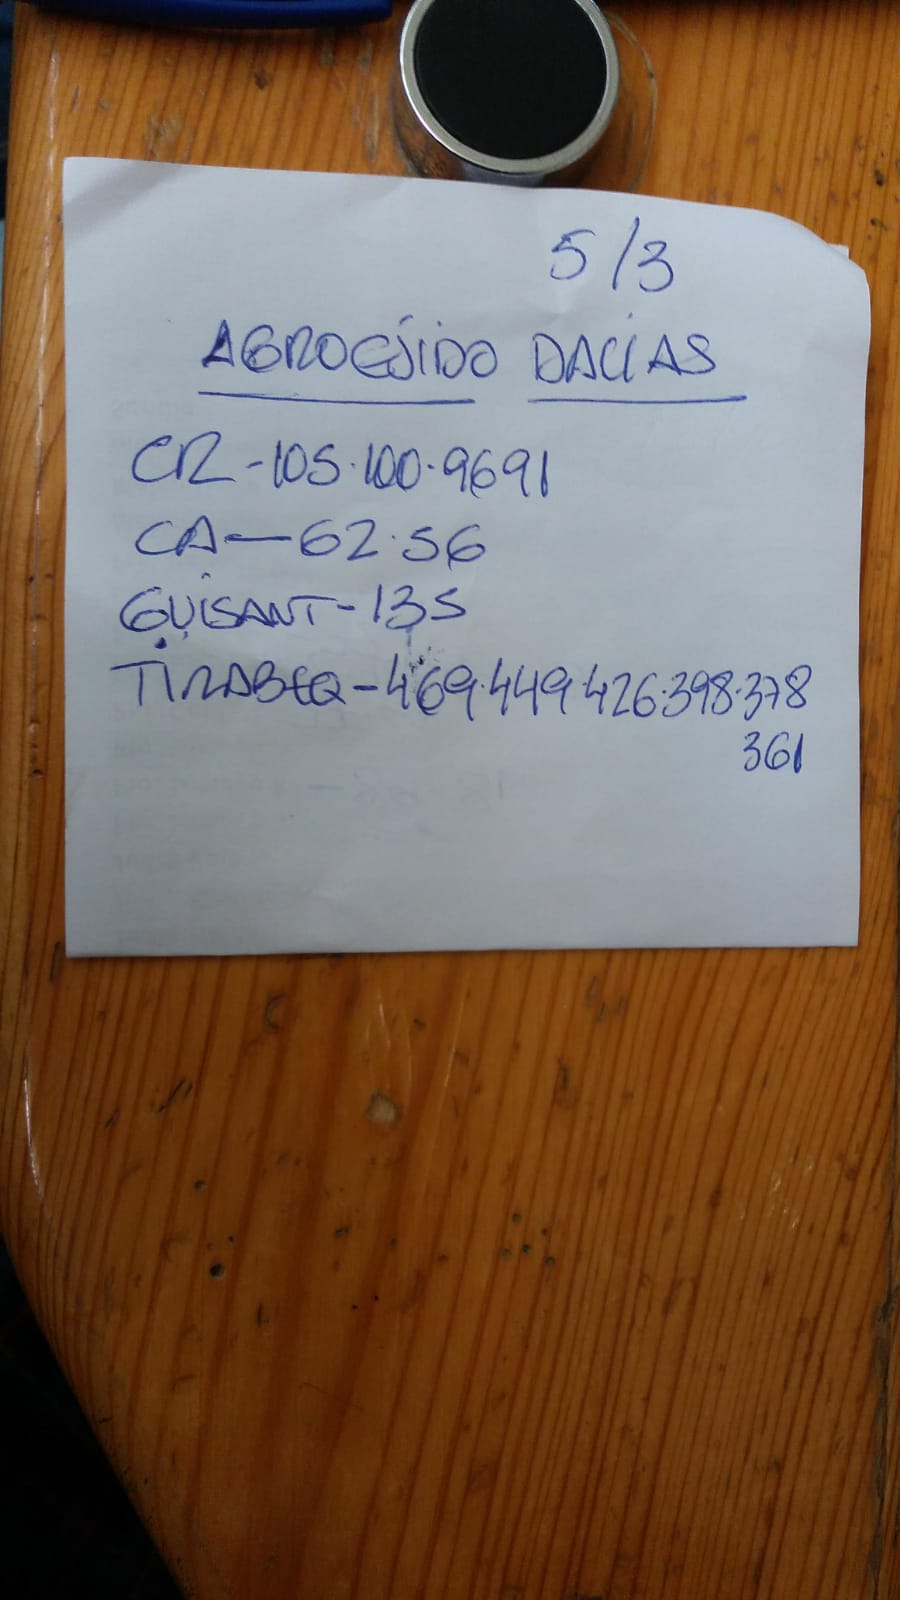 5/3
AGROEJIDO DALÍAS
CR-105.100.9691
CA—62.56
GUISANT-135
TIRABEQ-469.449.426.398.378
361